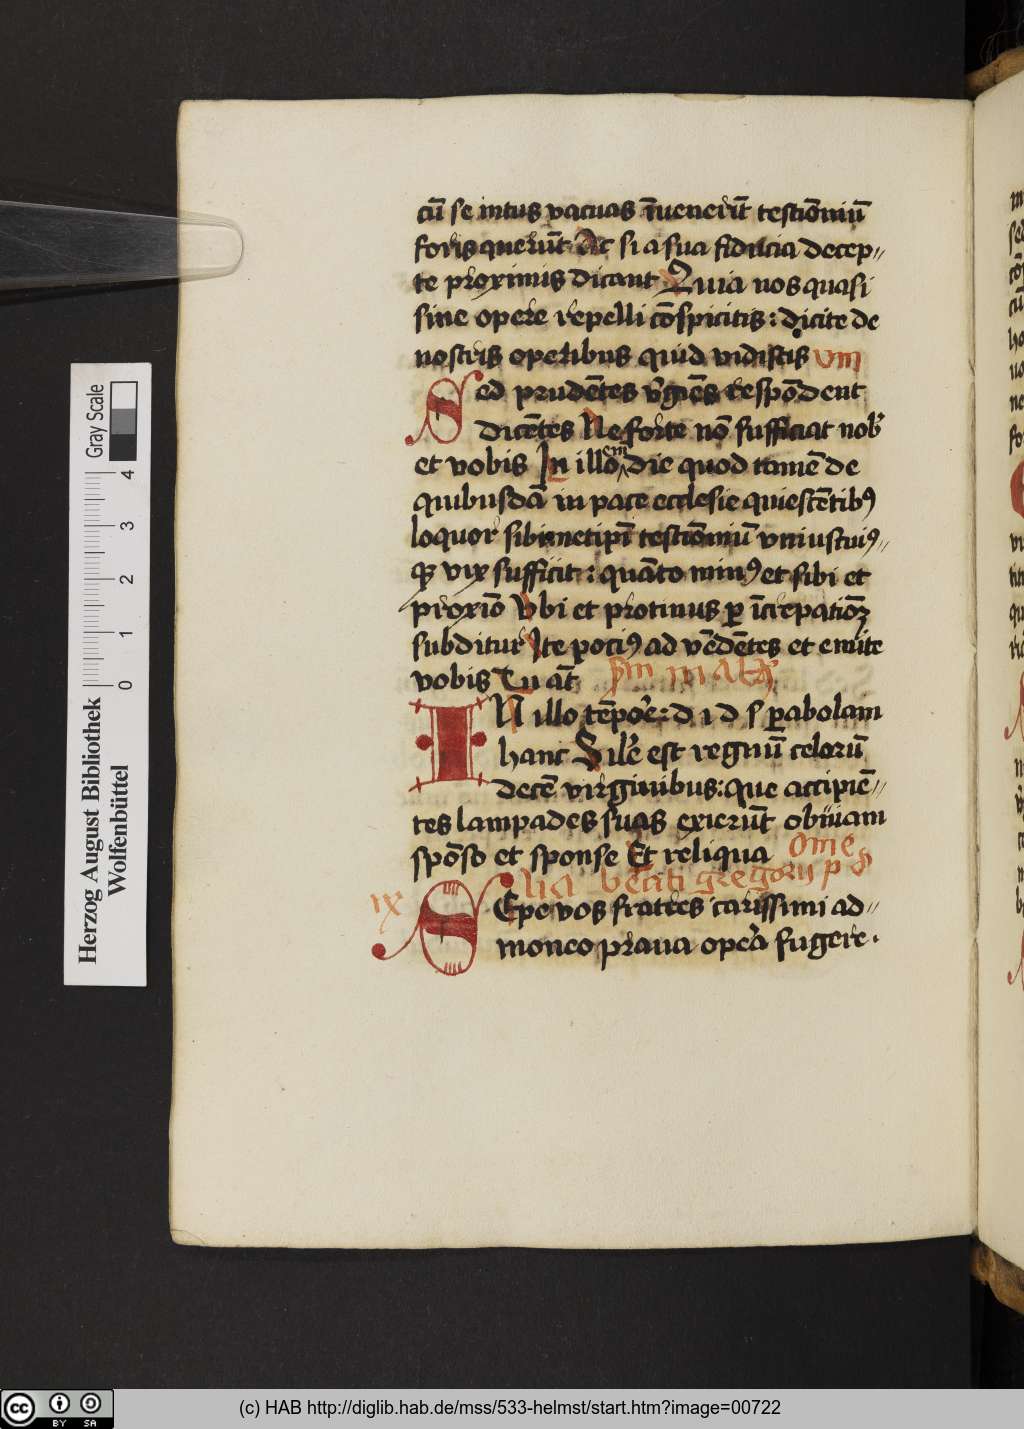 cū se intus vacuas īuenerūt testiōniū
foris querūt Ac si a sua fiducia decep〃
te proximis dicant Quia nos quasi
sine opere repelli cōspicitis : dicite de
nostris operibus quid vidistis viii
Sed prudētes v̕gīēs respōdent
dicētes Ne forte nō sufficiat nob̕
et vobis In illo em die quod tamē de
quibusdā in pace ecclesie quiescētibꝰ
loquor sibimetipī testiōniū vniuscuiꝰ〃
qꝫ vix sufficit : quāto minꝰ et sibi et
proxīo Vbi et protinus ꝑ īcrepatiōꝫ
subditur Ite pociꝰ ad vēdētes et emite
vobis Tu āt
IN illo tēpor̕e : d i d s ꝑabolam
hanc Sil̕e est regnū celorū
decē virginibus : que accipiē〃
tes lampades suas exierūt obuiam
spōso et sponse Et reliqua Ome
lia beati gregorii p p
ix
SEpe vos fratres carissimi ad〃
moneo praua oper̕a fugere .
Herzog August Bibliothek
Wolfenbüttel
Gray Scale
0 1 2 3 4
CC BY SA
(c) HAB http://diglib.hab.de/mss/533-helmst/start.htm?image=00722